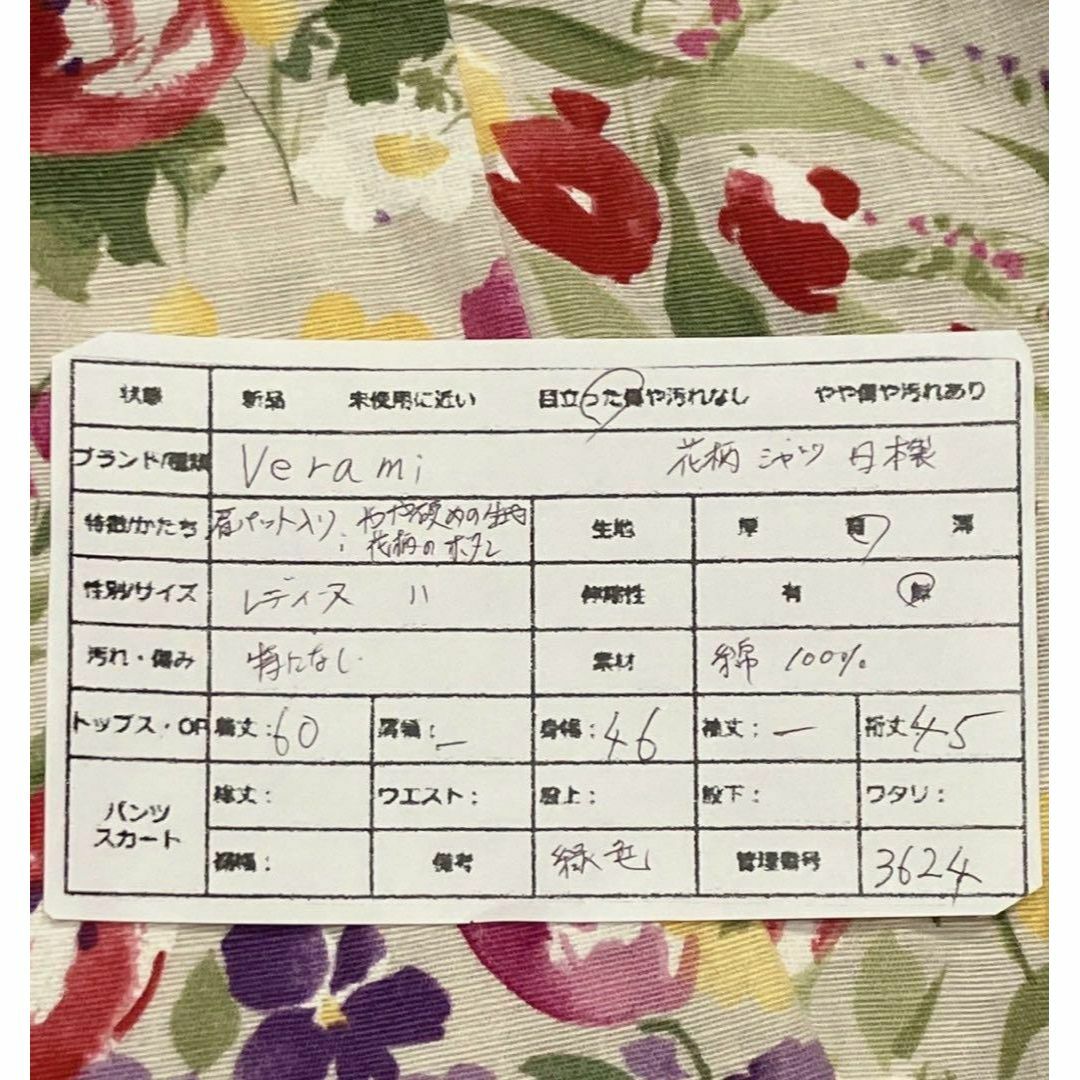 状態 新品 未使用に近い 目立った傷や汚れなし やや傷や汚れあり
ブランド/種類 Verami 花柄 シャツ 日本製
特徴/かたち 肩パット入り; やや硬めの生地 生地 厚 普 薄
花柄のボタン
性別/サイズ レディース 11 伸縮性 有 無
汚れ・傷み 特になし 素材 綿 100%
トップス・OP 着丈:60 肩幅:— 身幅:46 袖丈:— 裄丈45
パンツ スカート 総丈: ウエスト: 股上: 股下: ワタリ:
裾幅: 備考 緑色 管理番号 3624